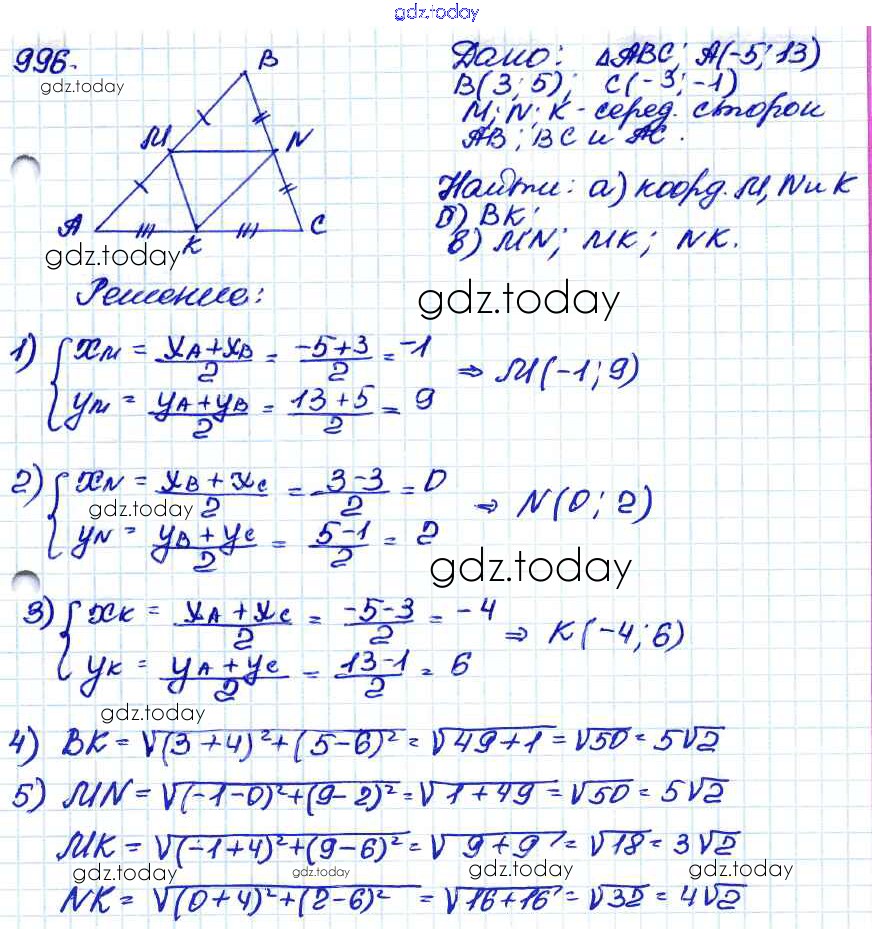 gdz.today
996.
gdz.today
B
M
N
A
K
C
gdz.today
Дано: ΔABC; A(-5; 13)
B(3; 5); C(-3; -1)
M; N; K - серед. сторон
AB; BC и AC.
Найти: а) коорд. M, N и K
б) BK;
в) MN; MK; NK.
Решение:
gdz.today
1) { xM = (xA + xB)/2 = (-5+3)/2 = -1
yM = (yA + yB)/2 = (13+5)/2 = 9
⇒ M(-1; 9)
2) { xN = (xB + xC)/2 = (3-3)/2 = 0
gdz.today
yN = (yB + yC)/2 = (5-1)/2 = 2
⇒ N(0; 2)
gdz.today
3) { xK = (xA + xC)/2 = (-5-3)/2 = -4
yK = (yA + yC)/2 = (13-1)/2 = 6
⇒ K(-4; 6)
gdz.today
4) BK = √((3+4)²+(5-6)²) = √(49+1) = √50 = 5√2
5) MN = √((-1-0)²+(9-2)²) = √(1+49) = √50 = 5√2
MK = √((-1+4)²+(9-6)²) = √(9+9) = √18 = 3√2
gdz.today gdz.today gdz.today gdz.today
NK = √((0+4)²+(2-6)²) = √(16+16) = √32 = 4√2